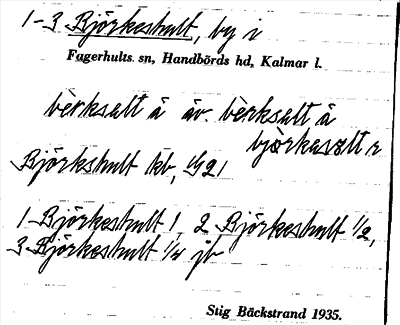 1-3 Björkeshult, by i
Fagerhults sn, Handbörds hd, Kalmar l.
bèrksalt å äv. bèrksalt å
bjòrkasalt a
Björkshult kb, G21
1 Björkeshult 1, 2 Björkeshult 1/2,
3 Björkeshult 1/4 jb
Stig Bäckstrand 1935.